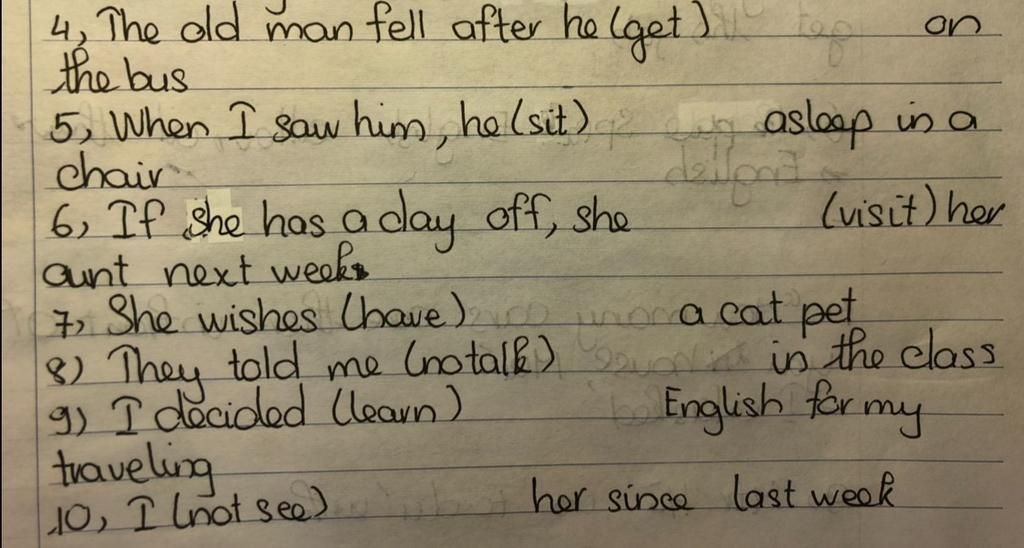 4, The old man fell after he (get) on
the bus
5, When I saw him, he (sit) asleep in a
chair
6, If she has a day off, she (visit) her
aunt next week
7, She wishes (have) a cat pet
8) They told me (notalk) in the class
9) I decided (learn) English for my
traveling
10, I (not see) her since last week